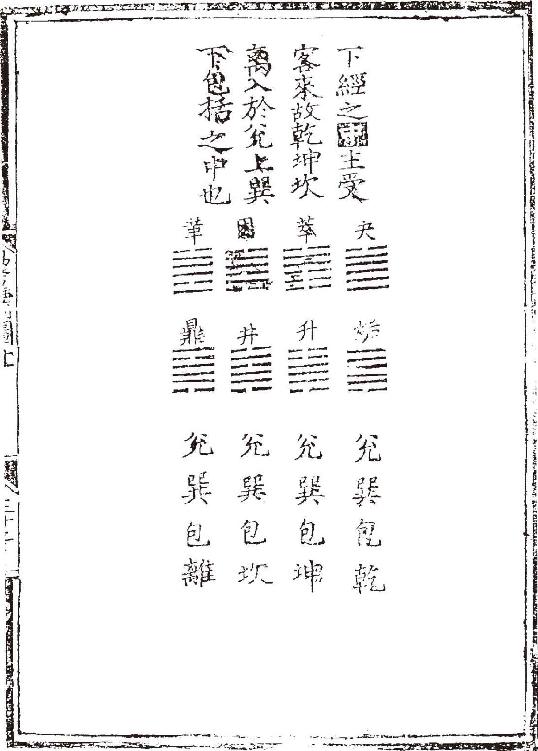 下經之主受
客來故乾坤坎
离入於兊上巽
下包括之中也
夬 萃 困 革
姤 升 井 鼎
兊巽包乾
兊巽包坤
兊巽包坎
兊巽包離